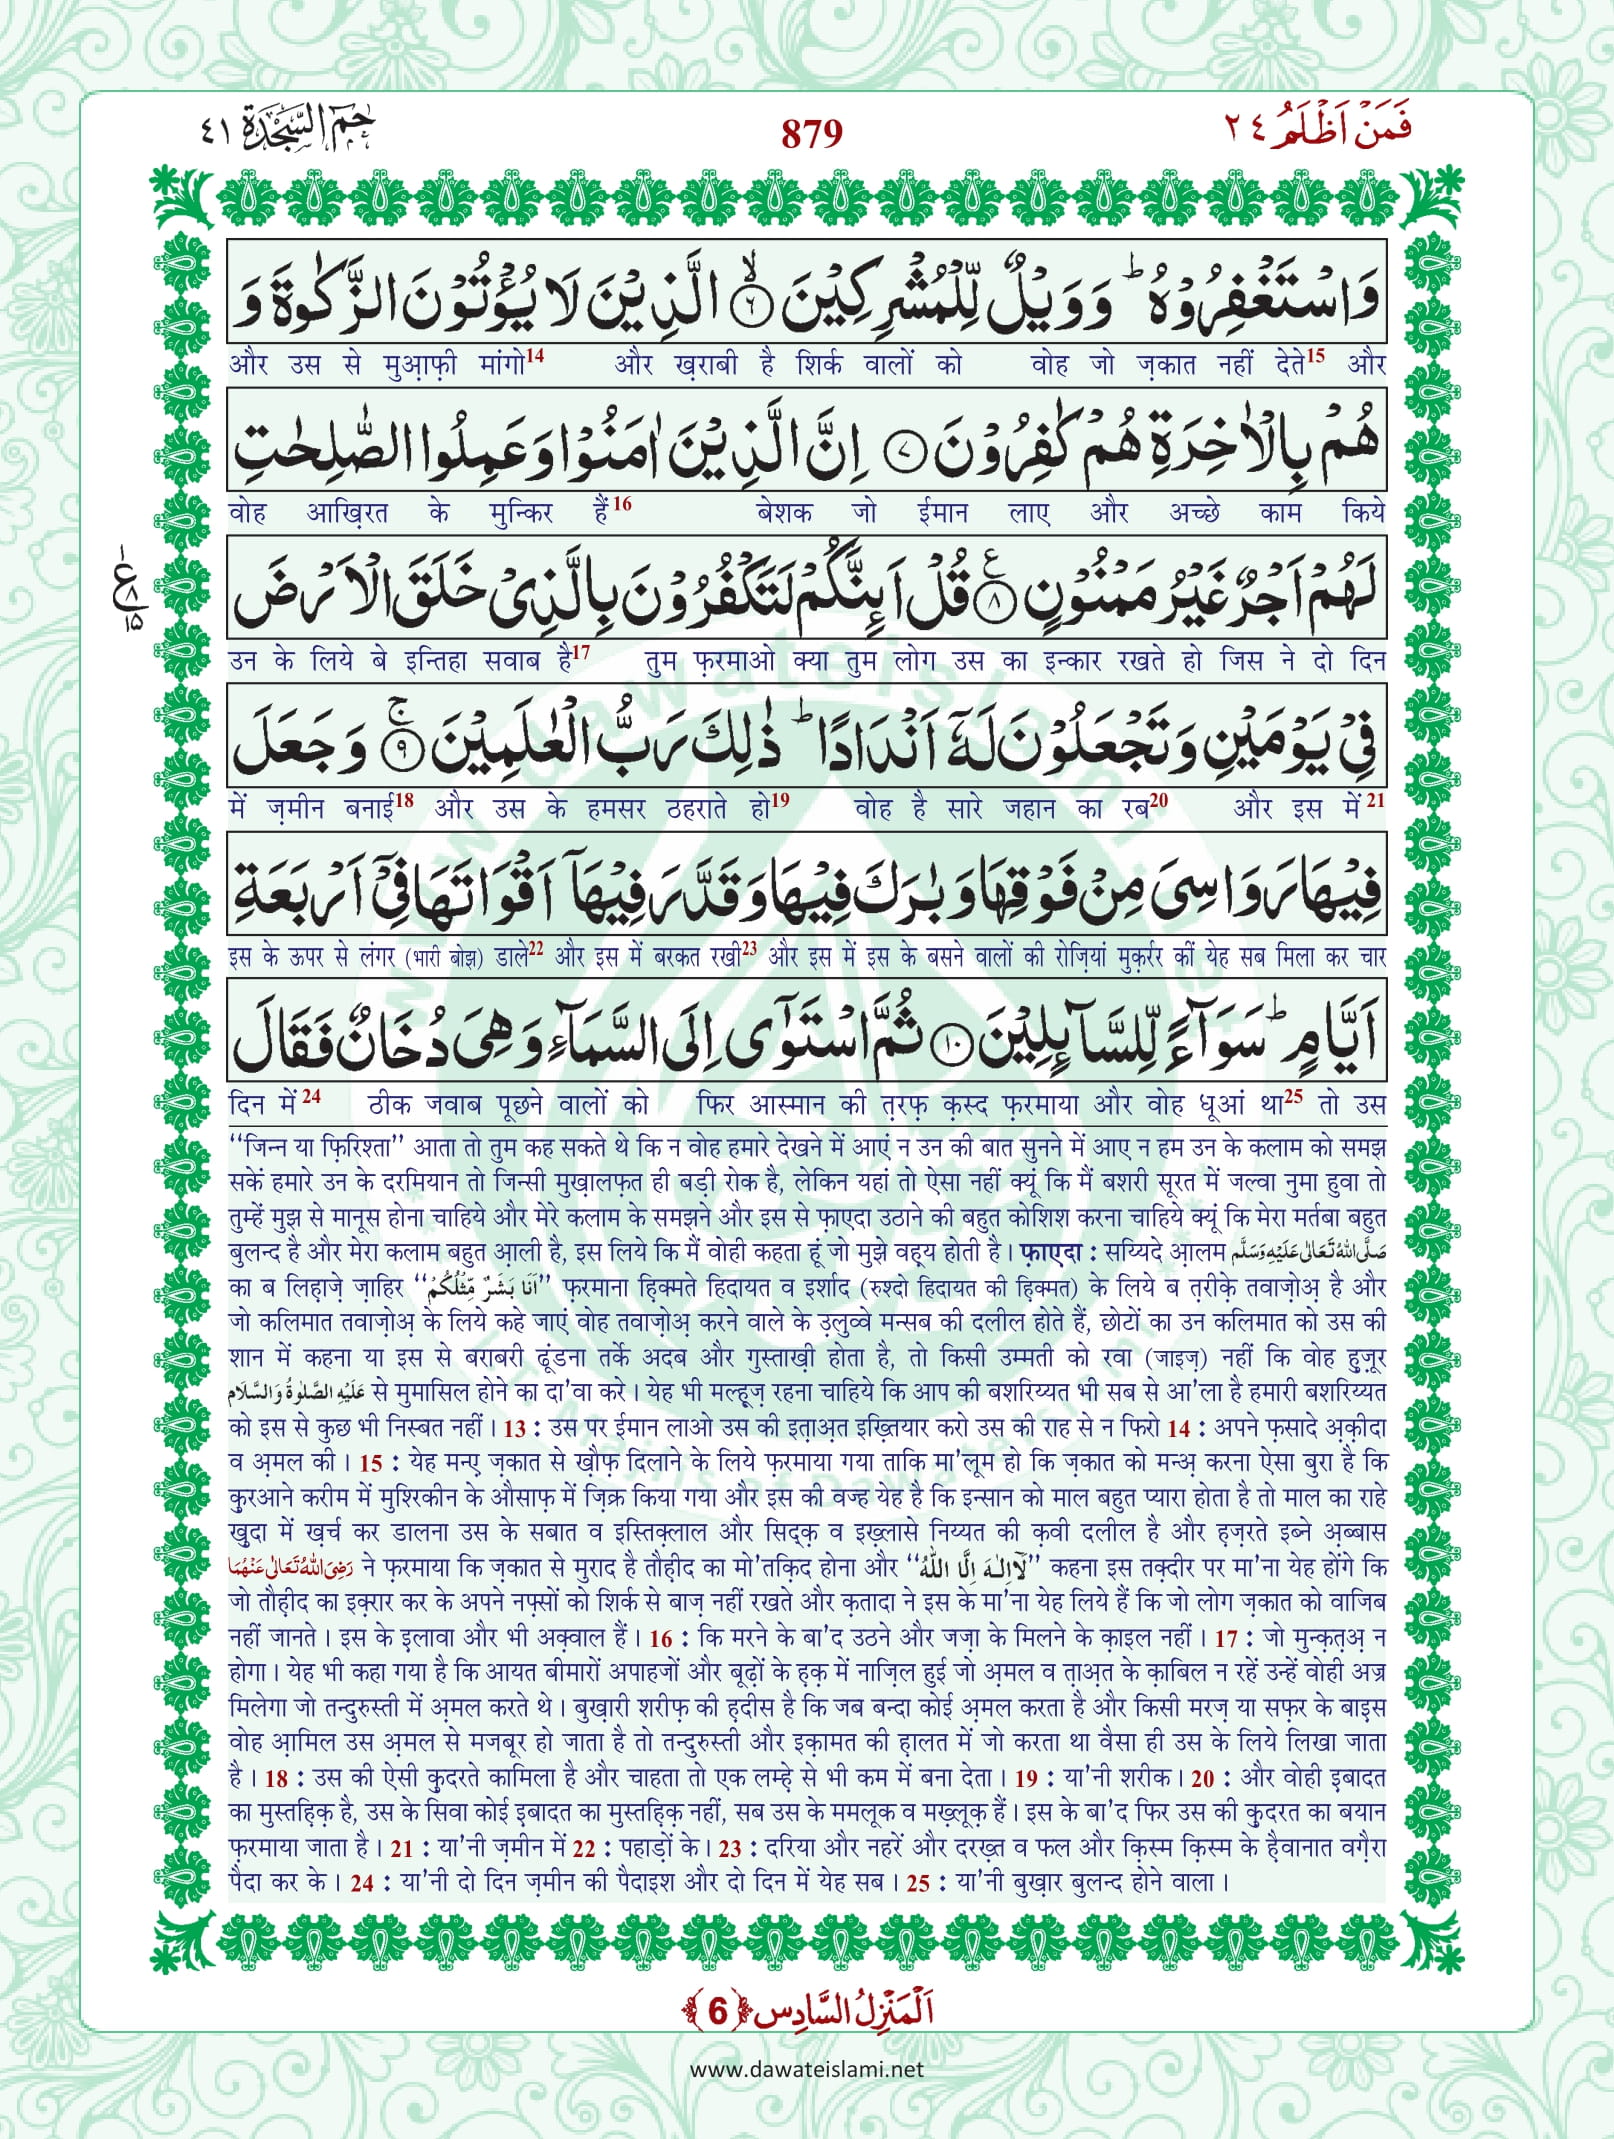 فَمَنْ اَظْلَمُ ٢٤
879
حٰمٓ السَّجْدَة ٤١
وَاسْتَغْفِرُوْهُ ؕ وَوَيْلٌ لِّلْمُشْرِكِيْنَ ۙ۝٦ الَّذِيْنَ لَا يُؤْتُوْنَ الزَّكٰوةَ وَ
और उस से मुआ़फ़ी मांगो14 और ख़राबी है शिर्क वालों को वोह जो ज़कात नहीं देते15 और
هُمْ بِالْاٰخِرَةِ هُمْ كٰفِرُوْنَ ۝٧ اِنَّ الَّذِيْنَ اٰمَنُوْا وَعَمِلُوا الصّٰلِحٰتِ
वोह आख़िरत के मुन्किर हैं16 बेशक जो ईमान लाए और अच्छे काम किये
لَهُمْ اَجْرٌ غَيْرُ مَمْنُوْنٍ ۝٨ ع قُلْ اَىِٕنَّكُمْ لَتَكْفُرُوْنَ بِالَّذِىْ خَلَقَ الْاَرْضَ
ع ١ ٨ ١٥
उन के लिये बे इन्तिहा सवाब है17 तुम फ़रमाओ क्या तुम लोग उस का इन्कार रखते हो जिस ने दो दिन
فِىْ يَوْمَيْنِ وَتَجْعَلُوْنَ لَهٗۤ اَنْدَادًا ؕ ذٰلِكَ رَبُّ الْعٰلَمِيْنَ ۚ۝٩ وَجَعَلَ
में ज़मीन बनाई18 और उस के हमसर ठहराते हो19 वोह है सारे जहान का रब20 और इस में21
فِيْهَا رَوَاسِىَ مِنْ فَوْقِهَا وَبٰرَكَ فِيْهَا وَقَدَّرَ فِيْهَاۤ اَقْوَاتَهَا فِىْۤ اَرْبَعَةِ
इस के ऊपर से लंगर (भारी बोझ) डाले22 और इस में बरकत रखी23 और इस में इस के बसने वालों की रोज़ियां मुक़र्रर कीं येह सब मिला कर चार
اَيَّامٍ ؕ سَوَآءً لِّلسَّآىِٕلِيْنَ ۝١٠ ثُمَّ اسْتَوٰۤى اِلَى السَّمَآءِ وَهِىَ دُخَانٌ فَقَالَ
दिन में24 ठीक जवाब पूछने वालों को फिर आस्मान की त़रफ़ क़स्द फ़रमाया और वोह धूआं था25 तो उस
‘‘जिन्न या फ़िरिश्ता’’ आता तो तुम कह सकते थे कि न वोह हमारे देखने में आएं न उन की बात सुनने में आए न हम उन के कलाम को समझ
सकें हमारे उन के दरमियान तो जिन्सी मुख़ालफ़त ही बड़ी रोक है, लेकिन यहां तो ऐसा नहीं क्यूं कि मैं बशरी सूरत में जल्वा नुमा हुवा तो
तुम्हें मुझ से मानूस होना चाहिये और मेरे कलाम के समझने और इस से फ़ाएदा उठाने की बहुत कोशिश करना चाहिये क्यूं कि मेरा मर्तबा बहुत
बुलन्द है और मेरा कलाम बहुत आ़ली है, इस लिये कि मैं वोही कहता हूं जो मुझे वह़्य होती है। फ़ाएदा : सय्यिदे आ़लम صَلَّى اللهُ تَعَالٰى عَلَيْهِ وَسَلَّم
का ब लिह़ाज़े ज़ाहिर ‘‘اَنَا بَشَرٌ مِّثْلُكُمْ’’ फ़रमाना ह़िक्मते हिदायत व इर्शाद (रुश्दो हिदायत की ह़िक्मत) के लिये ब त़रीक़े तवाज़ोअ़ है और
जो कलिमात तवाज़ोअ़ के लिये कहे जाएं वोह तवाज़ोअ़ करने वाले के उ़लुव्वे मन्सब की दलील होते हैं, छोटों का उन कलिमात को उस की
शान में कहना या इस से बराबरी ढूंडना तर्के अदब और गुस्ताख़ी होता है, तो किसी उम्मती को रवा (जाइज़) नहीं कि वोह हुज़ूर
عَلَيْهِ الصَّلٰوةُ وَالسَّلَام से मुमासिल होने का दा'वा करे। येह भी मल्ह़ूज़ रहना चाहिये कि आप की बशरिय्यत भी सब से आ'ला है हमारी बशरिय्यत
को इस से कुछ भी निस्बत नहीं। 13 : उस पर ईमान लाओ उस की इत़ाअ़त इख़्तियार करो उस की राह से न फिरो 14 : अपने फ़सादे अ़क़ीदा
व अ़मल की। 15 : येह मन्ए ज़कात से ख़ौफ़ दिलाने के लिये फ़रमाया गया ताकि मा'लूम हो कि ज़कात को मन्अ़ करना ऐसा बुरा है कि
कु़रआने करीम में मुश्रिकीन के औसाफ़ में ज़िक्र किया गया और इस की वज्ह येह है कि इन्सान को माल बहुत प्यारा होता है तो माल का राहे
खु़दा में ख़र्च कर डालना उस के सबात व इस्तिक़्लाल और सिद्क़ व इख़्लासे निय्यत की क़वी दलील है और ह़ज़रते इब्ने अ़ब्बास
رَضِىَ اللهُ تَعَالٰى عَنْهُمَا ने फ़रमाया कि ज़कात से मुराद है तौह़ीद का मो'तक़िद होना और ‘‘لَآ اِلٰهَ اِلَّا اللّٰهُ’’ कहना इस तक़्दीर पर मा'ना येह होंगे कि
जो तौह़ीद का इक़्रार कर के अपने नफ़्सों को शिर्क से बाज़ नहीं रखते और क़तादा ने इस के मा'ना येह लिये हैं कि जो लोग ज़कात को वाजिब
नहीं जानते। इस के इ़लावा और भी अक़्वाल हैं। 16 : कि मरने के बा'द उठने और जज़ा के मिलने के क़ाइल नहीं। 17 : जो मुन्क़त़अ़ न
होगा। येह भी कहा गया है कि आयत बीमारों अपाहजों और बूढ़ों के ह़क़ में नाज़िल हुई जो अ़मल व त़ाअ़त के क़ाबिल न रहें उन्हें वोही अज्र
मिलेगा जो तन्दुरुस्ती में अ़मल करते थे। बुख़ारी शरीफ़ की ह़दीस है कि जब बन्दा कोई अ़मल करता है और किसी मरज़ या सफ़र के बाइस
वोह आ़मिल उस अ़मल से मजबूर हो जाता है तो तन्दुरुस्ती और इक़ामत की ह़ालत में जो करता था वैसा ही उस के लिये लिखा जाता
है। 18 : उस की ऐसी कु़दरते कामिला है और चाहता तो एक लम्ह़े से भी कम में बना देता। 19 : या'नी शरीक। 20 : और वोही इ़बादत
का मुस्तह़िक़ है, उस के सिवा कोई इ़बादत का मुस्तह़िक़ नहीं, सब उस के ममलूक व मख़्लूक़ हैं। इस के बा'द फिर उस की कु़दरत का बयान
फ़रमाया जाता है। 21 : या'नी ज़मीन में 22 : पहाड़ों के। 23 : दरिया और नहरें और दरख़्त व फल और क़िस्म क़िस्म के है़वानात वगै़रा
पैदा कर के। 24 : या'नी दो दिन ज़मीन की पैदाइश और दो दिन में येह सब। 25 : या'नी बुख़ार बुलन्द होने वाला।
اَلْمَنْزِلُ السَّادِس ﴿6﴾
www.dawateislami.net